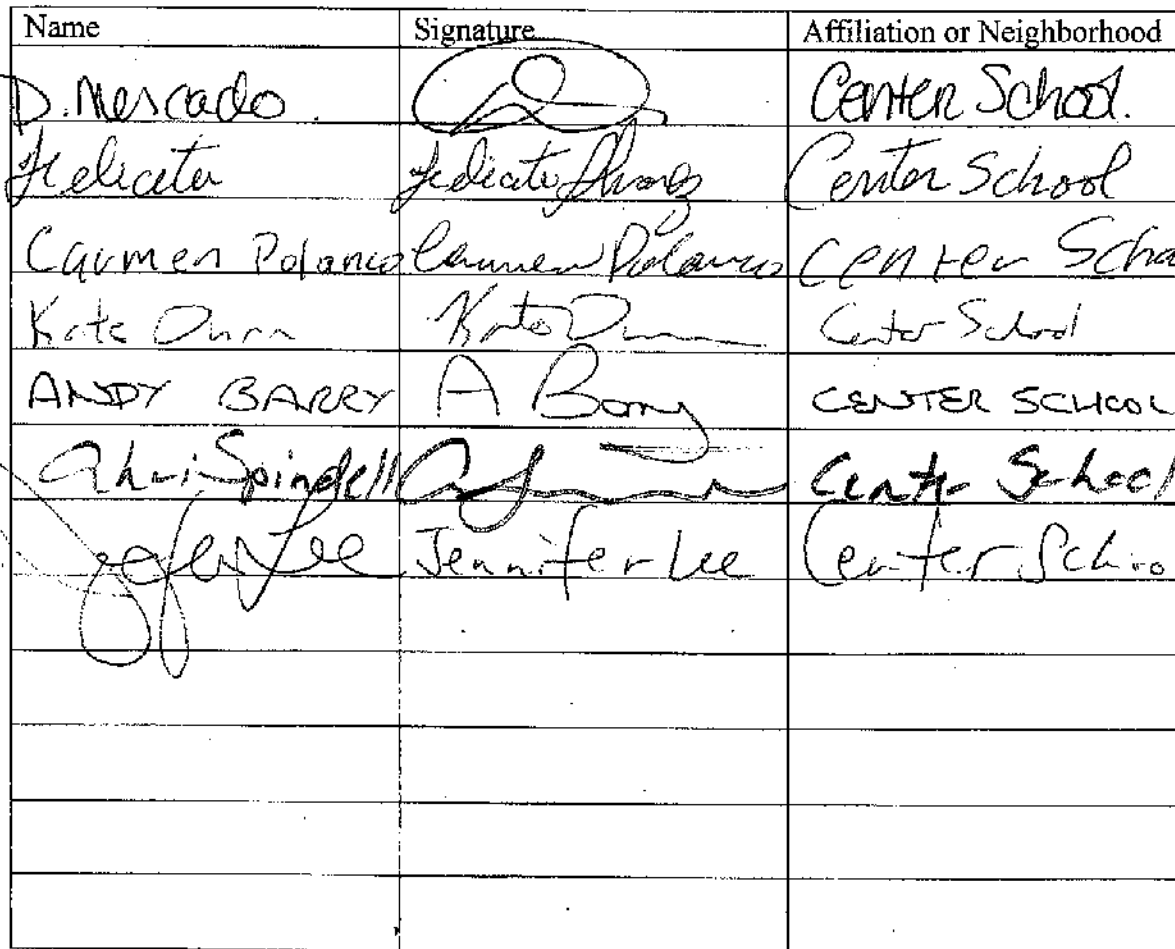 Name Signature Affiliation or Neighborhood
D. Mercado. Center School.
Felicita Felicita Center School
Carmen Polanco Carmen Polanco Center Schoo
Kate Dunn Kate Dunn Center School
ANDY BARRY A Barry CENTER SCHOOL
Spindell Center School
Lee Jennifer Lee Center Schoo